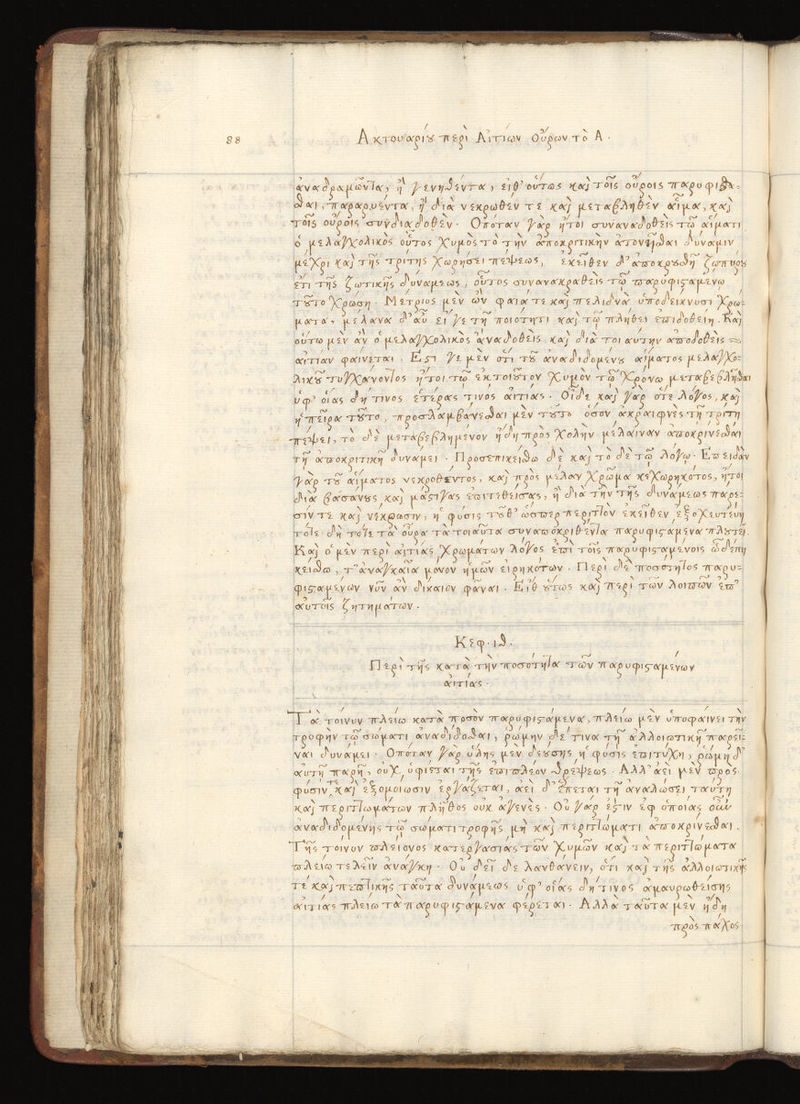 88
Ἀκτουαρίου περὶ Αἰτιῶν Οὔρων τὸ Α.
ἀναδραμῶντα, ἢ γενηθέντα, εἶθ' οὕτως καὶ τοῖς οὔροις παρυφίστα-
σθαι, παραρυέντα, ἢ διὰ νεκρωθὲν τε καὶ μεταβληθὲν αἷμα, καὶ
τοῖς οὔροις συνδιαδοθέν. Ὁπόταν γὰρ ἤτοι συναναδοθεὶς τῷ αἵματι
ὁ μελαγχολικὸς οὗτος χυμὸς τὸ τὴν ἀποκριτικὴν ἀτονῆσθαι δύναμιν
μέχρι καὶ τῆς τρίτης χωρήσει πέψεως, ἐκεῖθεν δ' ἀποκρουσθῇ ζωπύρου
ἔτι τῆς ζωτικῆς δυνάμεως, οὗτος συνανακραθεὶς τῷ παρυφισταμένῳ
τοῦτο χρώσῃ. Μέτριος μὲν ὢν φαιά τε καὶ πελιδνὰ ὑποδείκνυσι χρώ-
ματα, μέλανα δ' αὖ εἴ γε τῇ ποιότητι καὶ τῷ πλήθει ἐπιδοθείη. Καὶ
οὕτω μὲν ἂν ὁ μελαγχολικὸς ἀναδοθεὶς καὶ διὰ τοιαύτην ἀποδοθεὶς
αἰτίαν φαίνεται. Ἔστι γε μὲν ὅτι τοῦ ἀναδιδομένου αἵματος μελαγχο-
λικοῦ τυγχάνοντος ἤτοι τῷ ἐκ τοιοῦτον χυμὸν τῷ χρόνῳ μεταβεβλῆσθαι
ὑφ' οἵας δή τινος ἑτέρας τινὸς αἰτίας. Οἶδε καὶ γὰρ ὅτε λόγος, καὶ
ἡ πεῖρα τοῦτο, προσλαμβάνεσθαι μὲν τοῦτο ὅσον ἀκραιφνὲς τῇ τρίτῃ
πέψει, τὸ δὲ μεταβεβλημένον ἤδη πρὸς χολὴν μέλαιναν ἀποκρίνεσθαι
τῇ ἀποκριτικῇ δυνάμει. Προσεπικείσθω δὲ καὶ τὸ δὲ τῷ λόγῳ. Ἐπειδὰν
γὰρ τοῦ αἵματος νεκροθέντος, καὶ πρὸς μέλαν χρῶμα κεχωρηκότος, ἤτοι
διὰ βασάνους καὶ μάστιγας ἐπιτεθείσας, ἢ διὰ τὴν τῆς δυνάμεως πάρε-
σίν τε καὶ νέκρωσιν, ἡ φύσις τοῦθ' ὥσπερ περιττὸν ἐκεῖθεν ἐξοχετεύῃ
τότε δὴ τότε τὰ οὖρα τὰ τοιαῦτα συναποκριθέντα παρυφιστάμενα πλουτεῖ.
Καὶ ὁ μὲν περὶ αἰτίας χρωμάτων λόγος ἐπὶ τοῖς παρυφισταμένοις ὧδέ πη
κείσθω, τ' ἀναγκαῖα μόνον ἡμῶν εἰρηκότων. Περὶ δὲ ποσότητος παρυ-
φισταμένων νῦν ἂν δίκαιον φᾶναι. Εἶθ' οὕτως καὶ περὶ τῶν λοιπῶν ἐπ'
αὐτοῖς ζητημάτων.
Κεφ. ιθ.
Περὶ τῆς κατὰ τὴν ποσότητα τῶν παρυφισταμένων
αἰτίας.
Τὰ τοίνυν πλείω κατὰ ποσὸν παρυφιστάμενα, πλείω μὲν ὑποφαίνει τὴν
τροφὴν τῷ σώματι ἀναδίδοσθαι, ῥώμην δέ τινα τῇ ἀλλοιωτικῇ παρεῖ-
ναι δυνάμει. Ὁπόταν γὰρ ὕλης μὲν δεούσης ἡ φύσις ἐπιτύχῃ, ῥώμη δ'
αὐτῇ παρῇ, οὐχ ὑφίεται τῆς ἐπιπλέον θρέψεως. Ἀλλ' ἀεὶ μὲν πρὸς
φύσιν καὶ ἐξομοίωσιν ἐργάζεται, ἀεὶ δ' ἕπεται τῇ ἀναλώσει ταύτῃ
καὶ περιττωμάτων πλῆθος οὐκ ἀγενές. Οὐ γάρ ἐστιν ἐφ' ὁποίας οὖν
ἀναδιδομένης τῷ σώματι τροφῆς μὴ καὶ περιττώματι ἀποκρίνεσθαι.
Τῆς τοίνυν πλείονος κατεργασίας τῶν χυμῶν καὶ τὰ περιττώματα
πλείω τελεῖν ἀνάγκη. Οὐ δεῖ δὲ λανθάνειν, ὅτι καὶ τῆς ἀλλοιωτικῆς
τε καὶ πεπτικῆς ταῦτα δυνάμεως ὑφ' οἵας δή τινος ἀμαυρωθείσης
αἰτίας πλείω τὰ παρυφιστάμενα φέρεται. Ἀλλὰ ταῦτα μὲν ἤδη
πρὸς πάχος